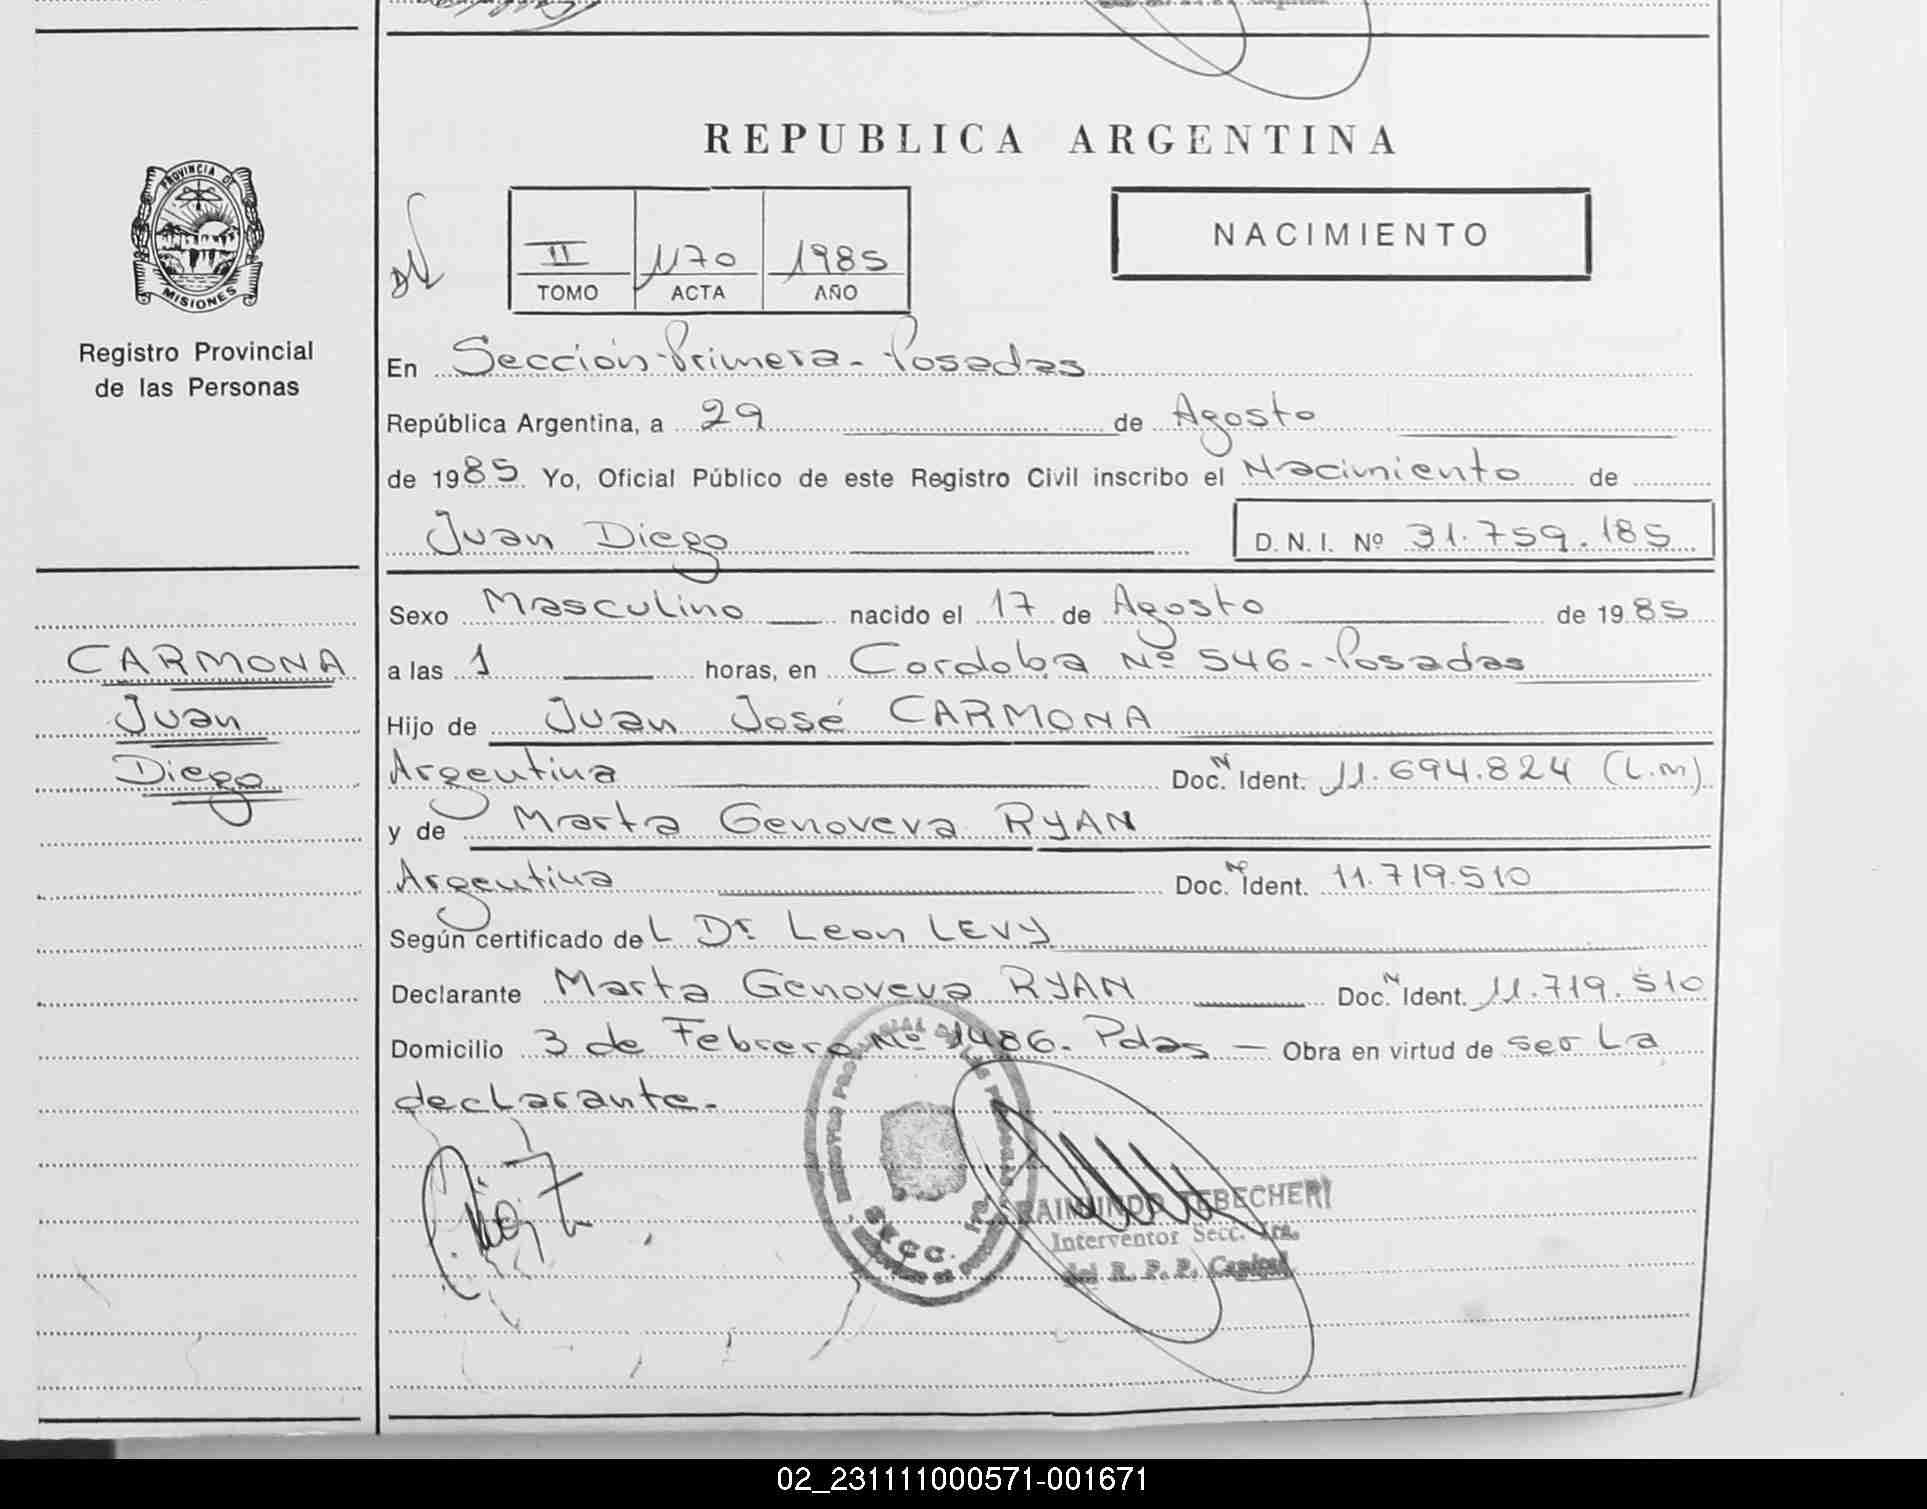 REPUBLICA ARGENTINA
PROVINCIA DE
MISIONES
Registro Provincial
de las Personas
II 1170 1985
TOMO ACTA AÑO
NACIMIENTO
En Sección Primera - Posadas
República Argentina, a 29 de Agosto
de 1985 Yo, Oficial Público de este Registro Civil inscribo el Nacimiento de
Juan Diego D. N. I. Nº 31.759.185
CARMONA
Juan
Diego
Sexo Masculino nacido el 17 de Agosto de 1985
a las 1 horas, en Cordoba Nº 546 - Posadas
Hijo de Juan José CARMONA
Argentina Doc. N Ident. 11.694.824 (L.m)
y de Marta Genoveva RYAN
Argentina Doc. Nº Ident. 11.719.510
Según certificado del Dr. Leon LEVY
Declarante Marta Genoveva RYAN Doc. N Ident. 11.719.510
Domicilio 3 de Febrero Nº 1486 - Pdas - Obra en virtud de ser La
declarante.
SECC. 1ra.
RAIMUNDO TEBECHERI
Interventor Secc. 1ra.
del R. P. P. Capital
02_231111000571-001671